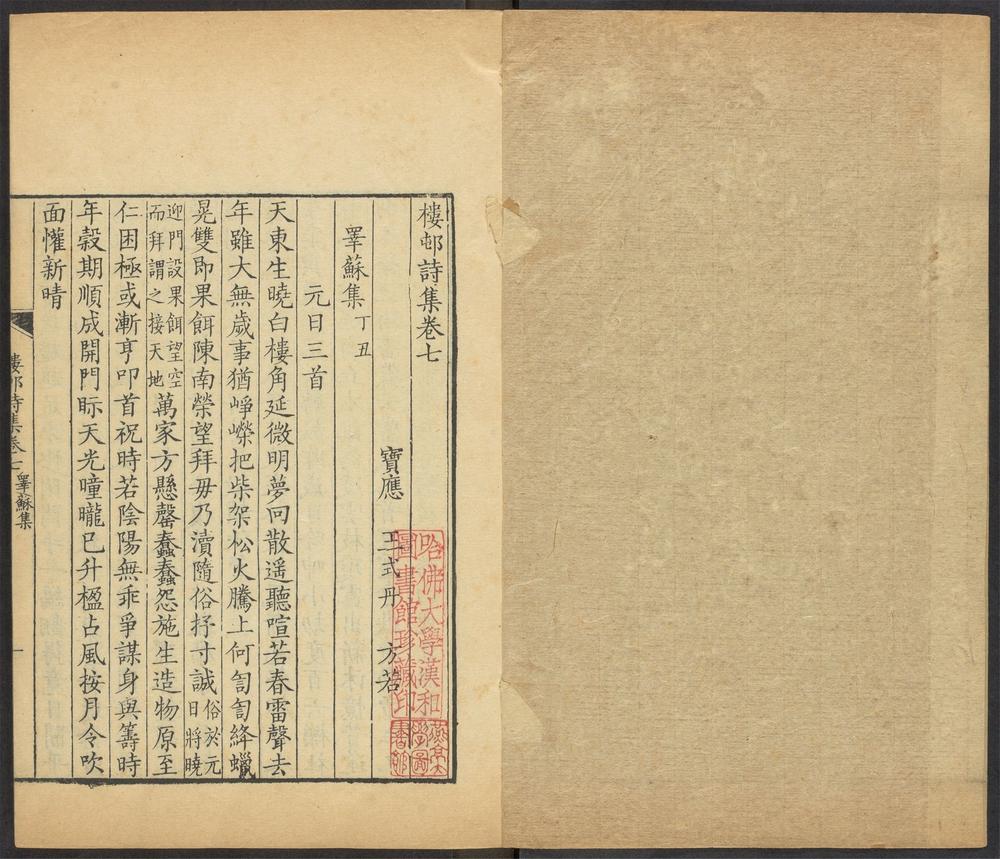 樓邨詩集卷七
寶應 王式丹 方若
睪蘇集丁丑
元日三首
天東生曉白樓角延微明夢回散遥聽喧若春雷聲去
年雖大無歲事猶崢嶸把柴架松火騰上何訇訇絳蠟
晃雙即果餌陳南榮望拜毋乃瀆隨俗抒寸誠俗於元
日將曉
迎門設果餌望空
而拜謂之接天地萬家方懸罄蠢蠢怨施生造物原至
仁困極或漸亨叩首祝時若陰陽無乖爭謀身與籌時
年穀期順成開門眎天光曈曨已升楹占風按月令吹
面懽新晴
樓邨詩集卷七 睪蘇集
一
哈佛大學漢和
圖書館珍藏印
燕京大
學圖
書館